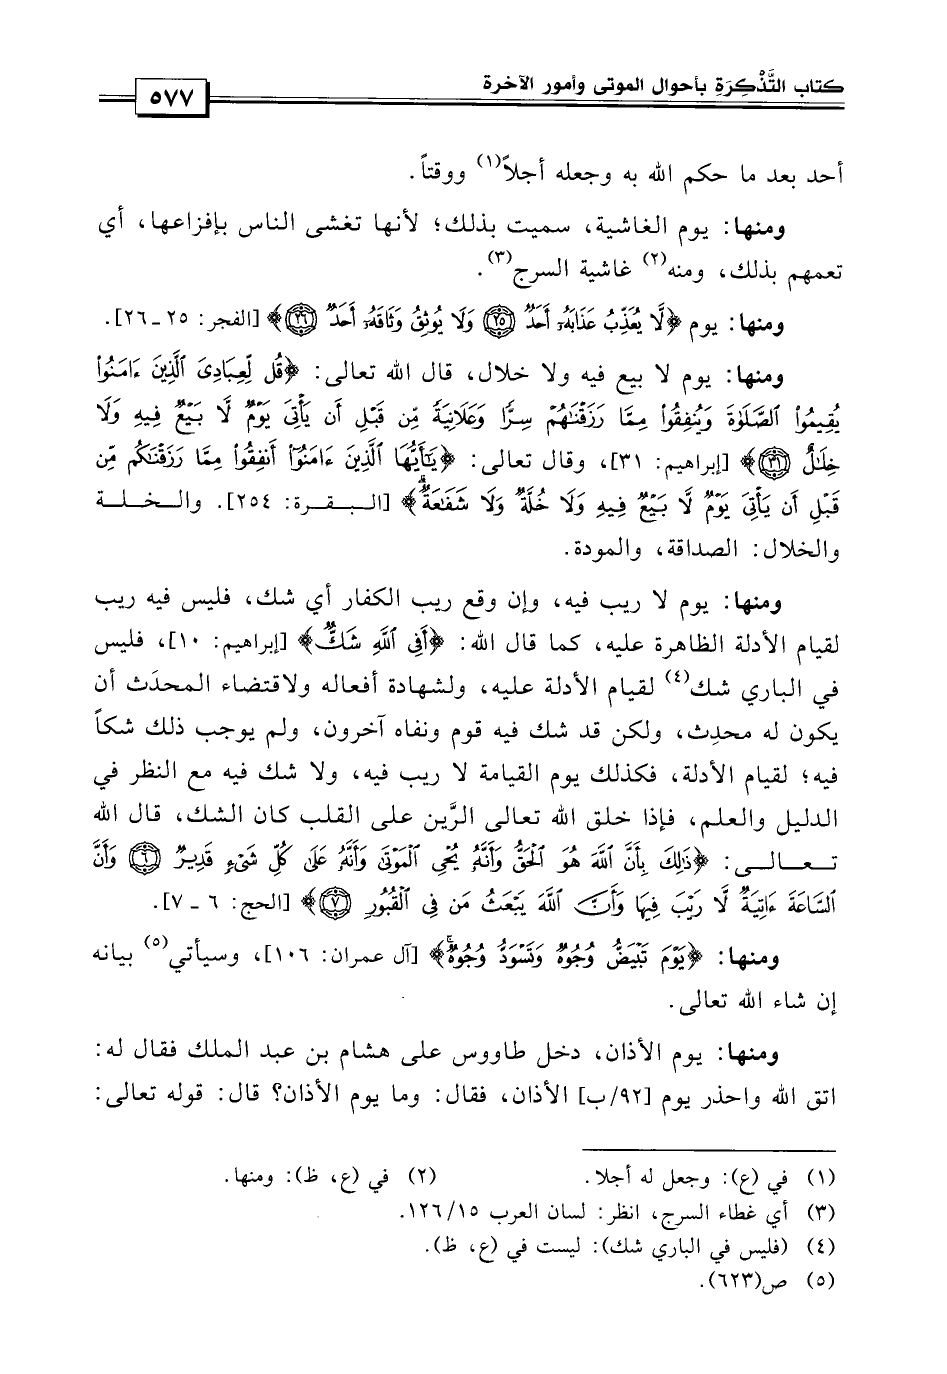 كتاب التَّذْكِرَةِ بأحوال الموتى وأمور الآخرة
٥٧٧
أحد بعد ما حكم الله به وجعله أجلاً(١) ووقتاً.
ومنها: يوم الغاشية، سميت بذلك؛ لأنها تغشى الناس بإفزاعها، أي
تعمهم بذلك، ومنه(٢) غاشية السرج(٣).
ومنها: يوم ﴿لَّا يُعَذِّبُ عَذَابَهُۥٓ أَحَدٌ ۝٢٥ وَلَا يُوثِقُ وَثَاقَهُۥٓ أَحَدٌ ۝٢٦﴾ [الفجر: ٢٥ ـ ٢٦].
ومنها: يوم لا بيع فيه ولا خلال، قال الله تعالى: ﴿قُل لِّعِبَادِىَ ٱلَّذِينَ ءَامَنُوا۟
يُقِيمُوا۟ ٱلصَّلَوٰةَ وَيُنفِقُوا۟ مِمَّا رَزَقْنَٰهُمْ سِرًّا وَعَلَانِيَةً مِّن قَبْلِ أَن يَأْتِىَ يَوْمٌ لَّا بَيْعٌ فِيهِ وَلَا
خِلَٰلٌ ۝٣١﴾ [إبراهيم: ٣١]، وقال تعالى: ﴿يَٰٓأَيُّهَا ٱلَّذِينَ ءَامَنُوٓا۟ أَنفِقُوا۟ مِمَّا رَزَقْنَٰكُم مِّن
قَبْلِ أَن يَأْتِىَ يَوْمٌ لَّا بَيْعٌ فِيهِ وَلَا خُلَّةٌ وَلَا شَفَٰعَةٌ﴾ [البقرة: ٢٥٤]. والخلة
والخلال: الصداقة، والمودة.
ومنها: يوم لا ريب فيه، وإن وقع ريب الكفار أي شك، فليس فيه ريب
لقيام الأدلة الظاهرة عليه، كما قال الله: ﴿أَفِى ٱللَّهِ شَكٌّ﴾ [إبراهيم: ١٠]، فليس
في الباري شك(٤) لقيام الأدلة عليه، ولشهادة أفعاله ولاقتضاء المحدَث أن
يكون له محدِث، ولكن قد شك فيه قوم ونفاه آخرون، ولم يوجب ذلك شكاً
فيه؛ لقيام الأدلة، فكذلك يوم القيامة لا ريب فيه، ولا شك فيه مع النظر في
الدليل والعلم، فإذا خلق الله تعالى الرَّين على القلب كان الشك، قال الله
تعالى: ﴿ذَٰلِكَ بِأَنَّ ٱللَّهَ هُوَ ٱلْحَقُّ وَأَنَّهُۥ يُحْىِ ٱلْمَوْتَىٰ وَأَنَّهُۥ عَلَىٰ كُلِّ شَىْءٍ قَدِيرٌ ۝٦ وَأَنَّ
ٱلسَّاعَةَ ءَاتِيَةٌ لَّا رَيْبَ فِيهَا وَأَنَّ ٱللَّهَ يَبْعَثُ مَن فِى ٱلْقُبُورِ ۝٧﴾ [الحج: ٦ ـ ٧].
ومنها: ﴿يَوْمَ تَبْيَضُّ وُجُوهٌ وَتَسْوَدُّ وُجُوهٌ﴾ [آل عمران: ١٠٦]، وسيأتي(٥) بيانه
إن شاء الله تعالى.
ومنها: يوم الأذان، دخل طاووس على هشام بن عبد الملك فقال له:
اتق الله واحذر يوم [٩٢/ب] الأذان، فقال: وما يوم الأذان؟ قال: قوله تعالى:
(١) في (ع): وجعل له أجلا. (٢) في (ع، ظ): ومنها.
(٣) أي غطاء السرج، انظر: لسان العرب ١٢٦/١٥.
(٤) (فليس في الباري شك): ليست في (ع، ظ).
(٥) ص(٦٢٣).